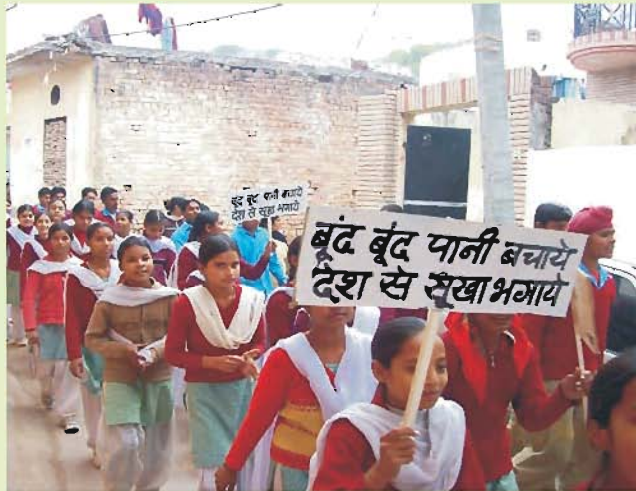 बूंद बूंद पानी बचाये
देश से सूखा भगाये
बूंद बूंद पानी बचाये
देश से सूखा भगाये